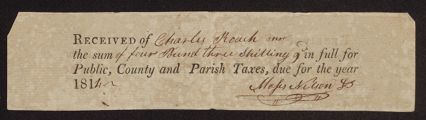 RECEIVED of Charles Roach
the sum of four Pound three Shilling in full for
Public, County and Parish Taxes, due for the year
181
Moses Nelson